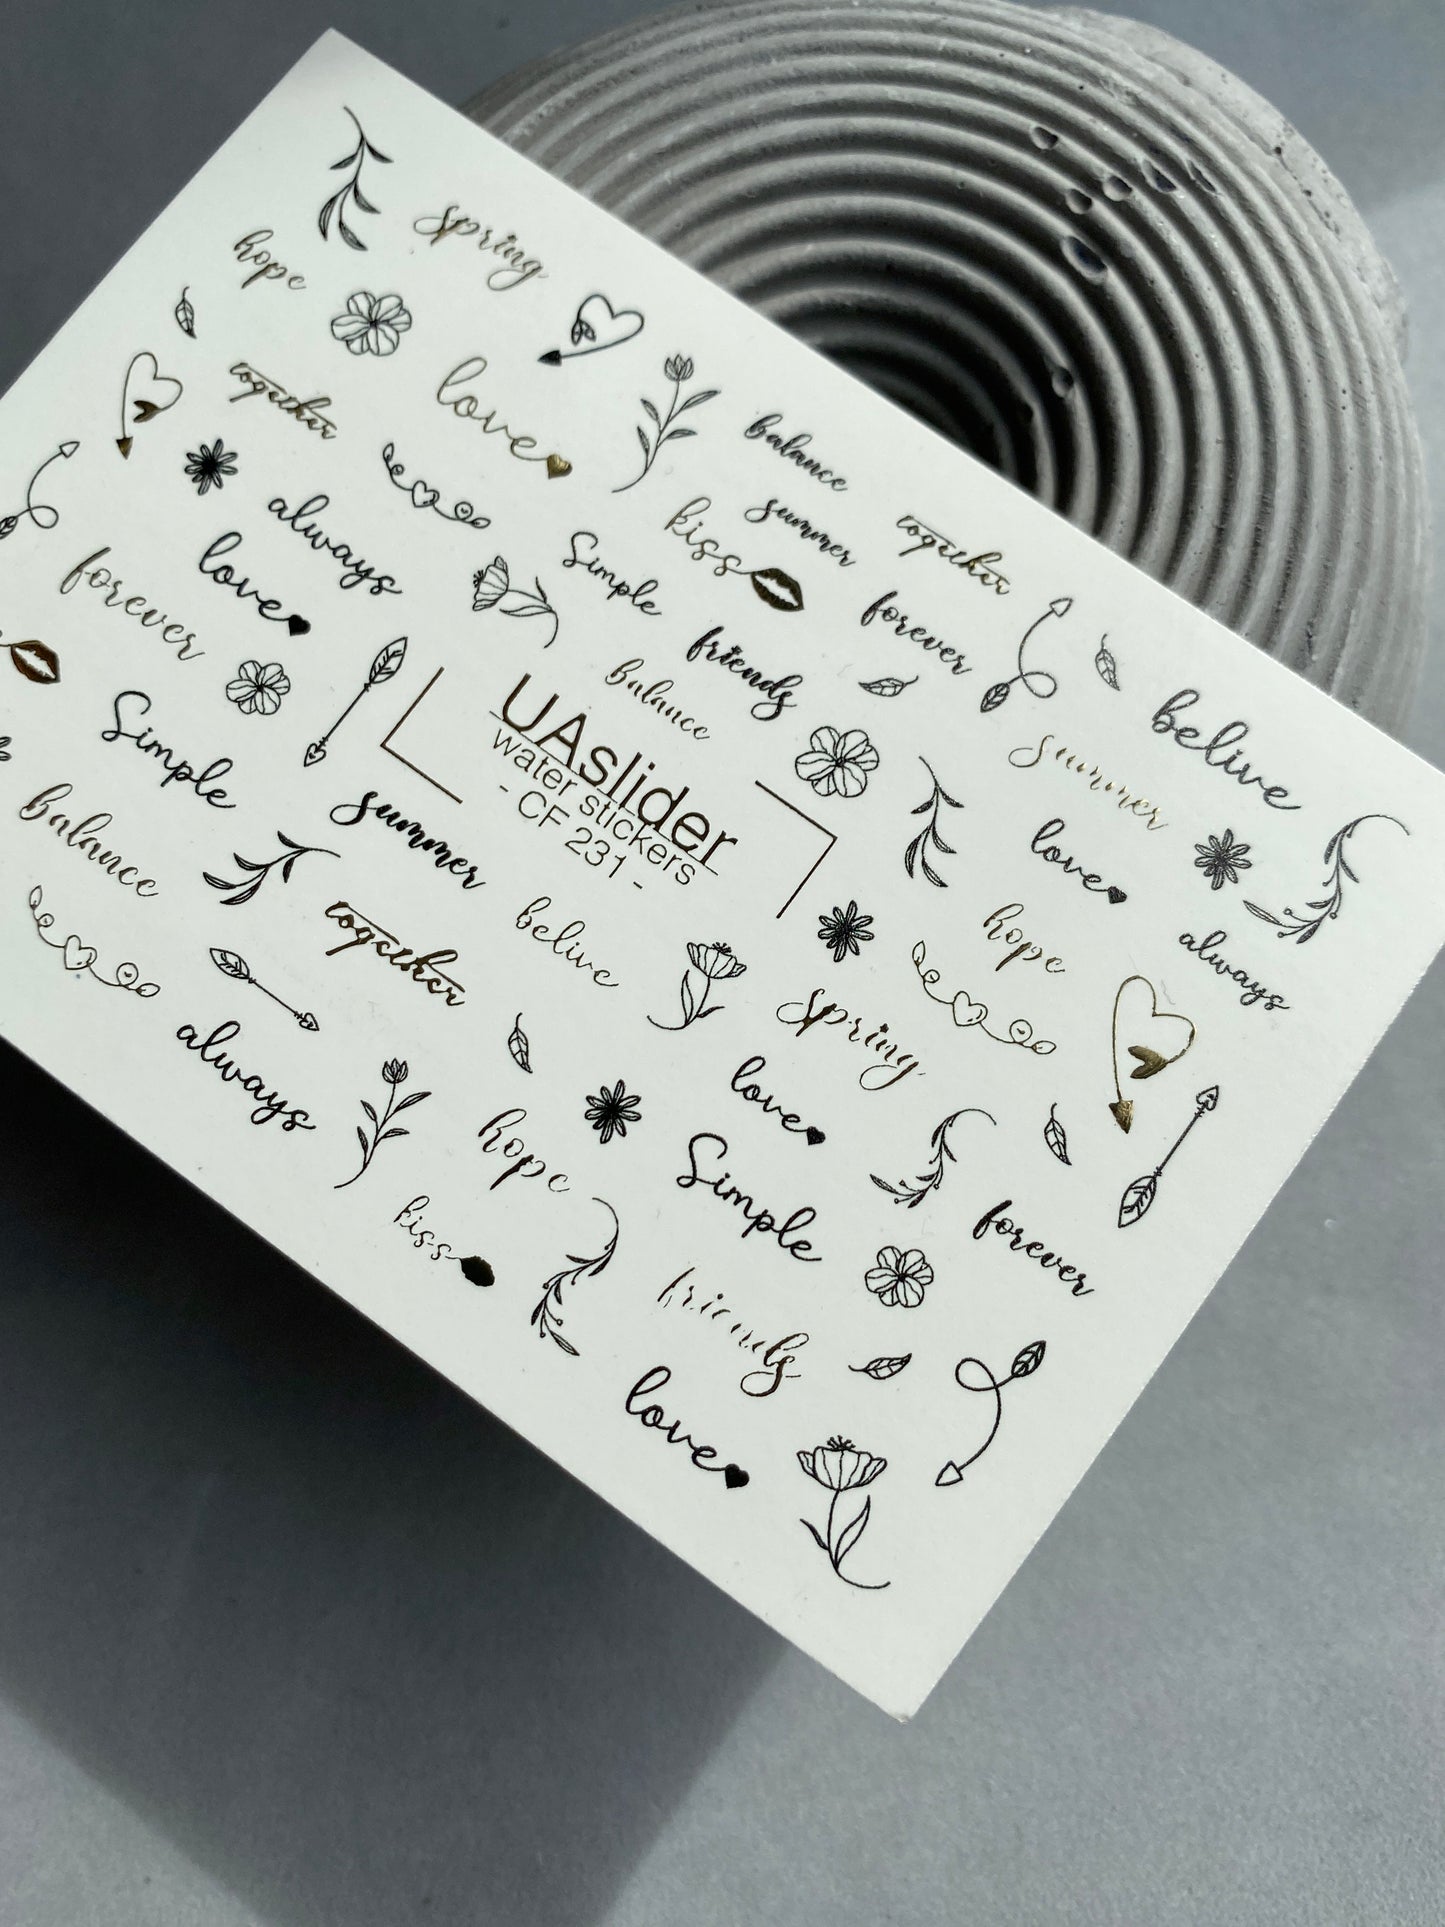 spring
hope
love
together
balance
summer
together
kiss
always
Simple
love
forever
forever
friends
belive
balance
summer
Simple
UAslider
water stickers
- CF 231 -
love
balance
summer
hope
always
together
belive
spring
always
love
hope
Simple
forever
kiss
friends
love